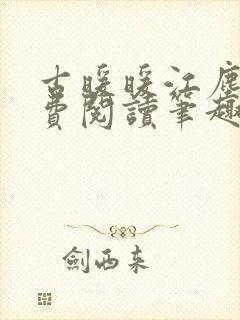 古暖暖江塵
費閱讀筆趣
劍西来